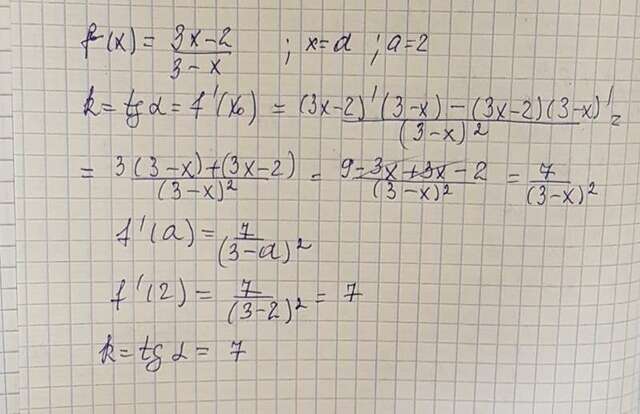 f(x) = (3x-2)/(3-x) ; x=a ; a=2
k = tg α = f'(x₀) = ((3x-2)'(3-x) - (3x-2)(3-x)')/(3-x)² =
= (3(3-x)+(3x-2))/(3-x)² = (9-3x+3x-2)/(3-x)² = 7/(3-x)²
f'(a) = 7/(3-a)²
f'(2) = 7/(3-2)² = 7
k = tg α = 7